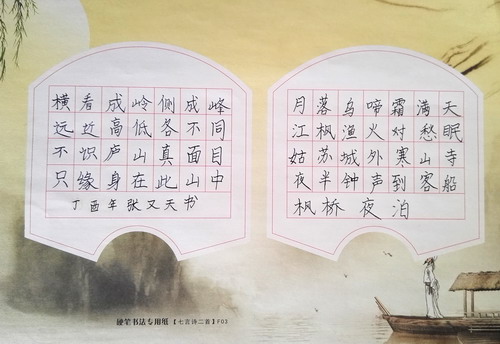 横看成岭侧成峰
远近高低各不同
不识庐山真面目
只缘身在此山中
丁酉年张又天书
月落乌啼霜满天
江枫渔火对愁眠
姑苏城外寒山寺
夜半钟声到客船
枫桥夜泊
硬笔书法专用纸【七言诗二首】F03